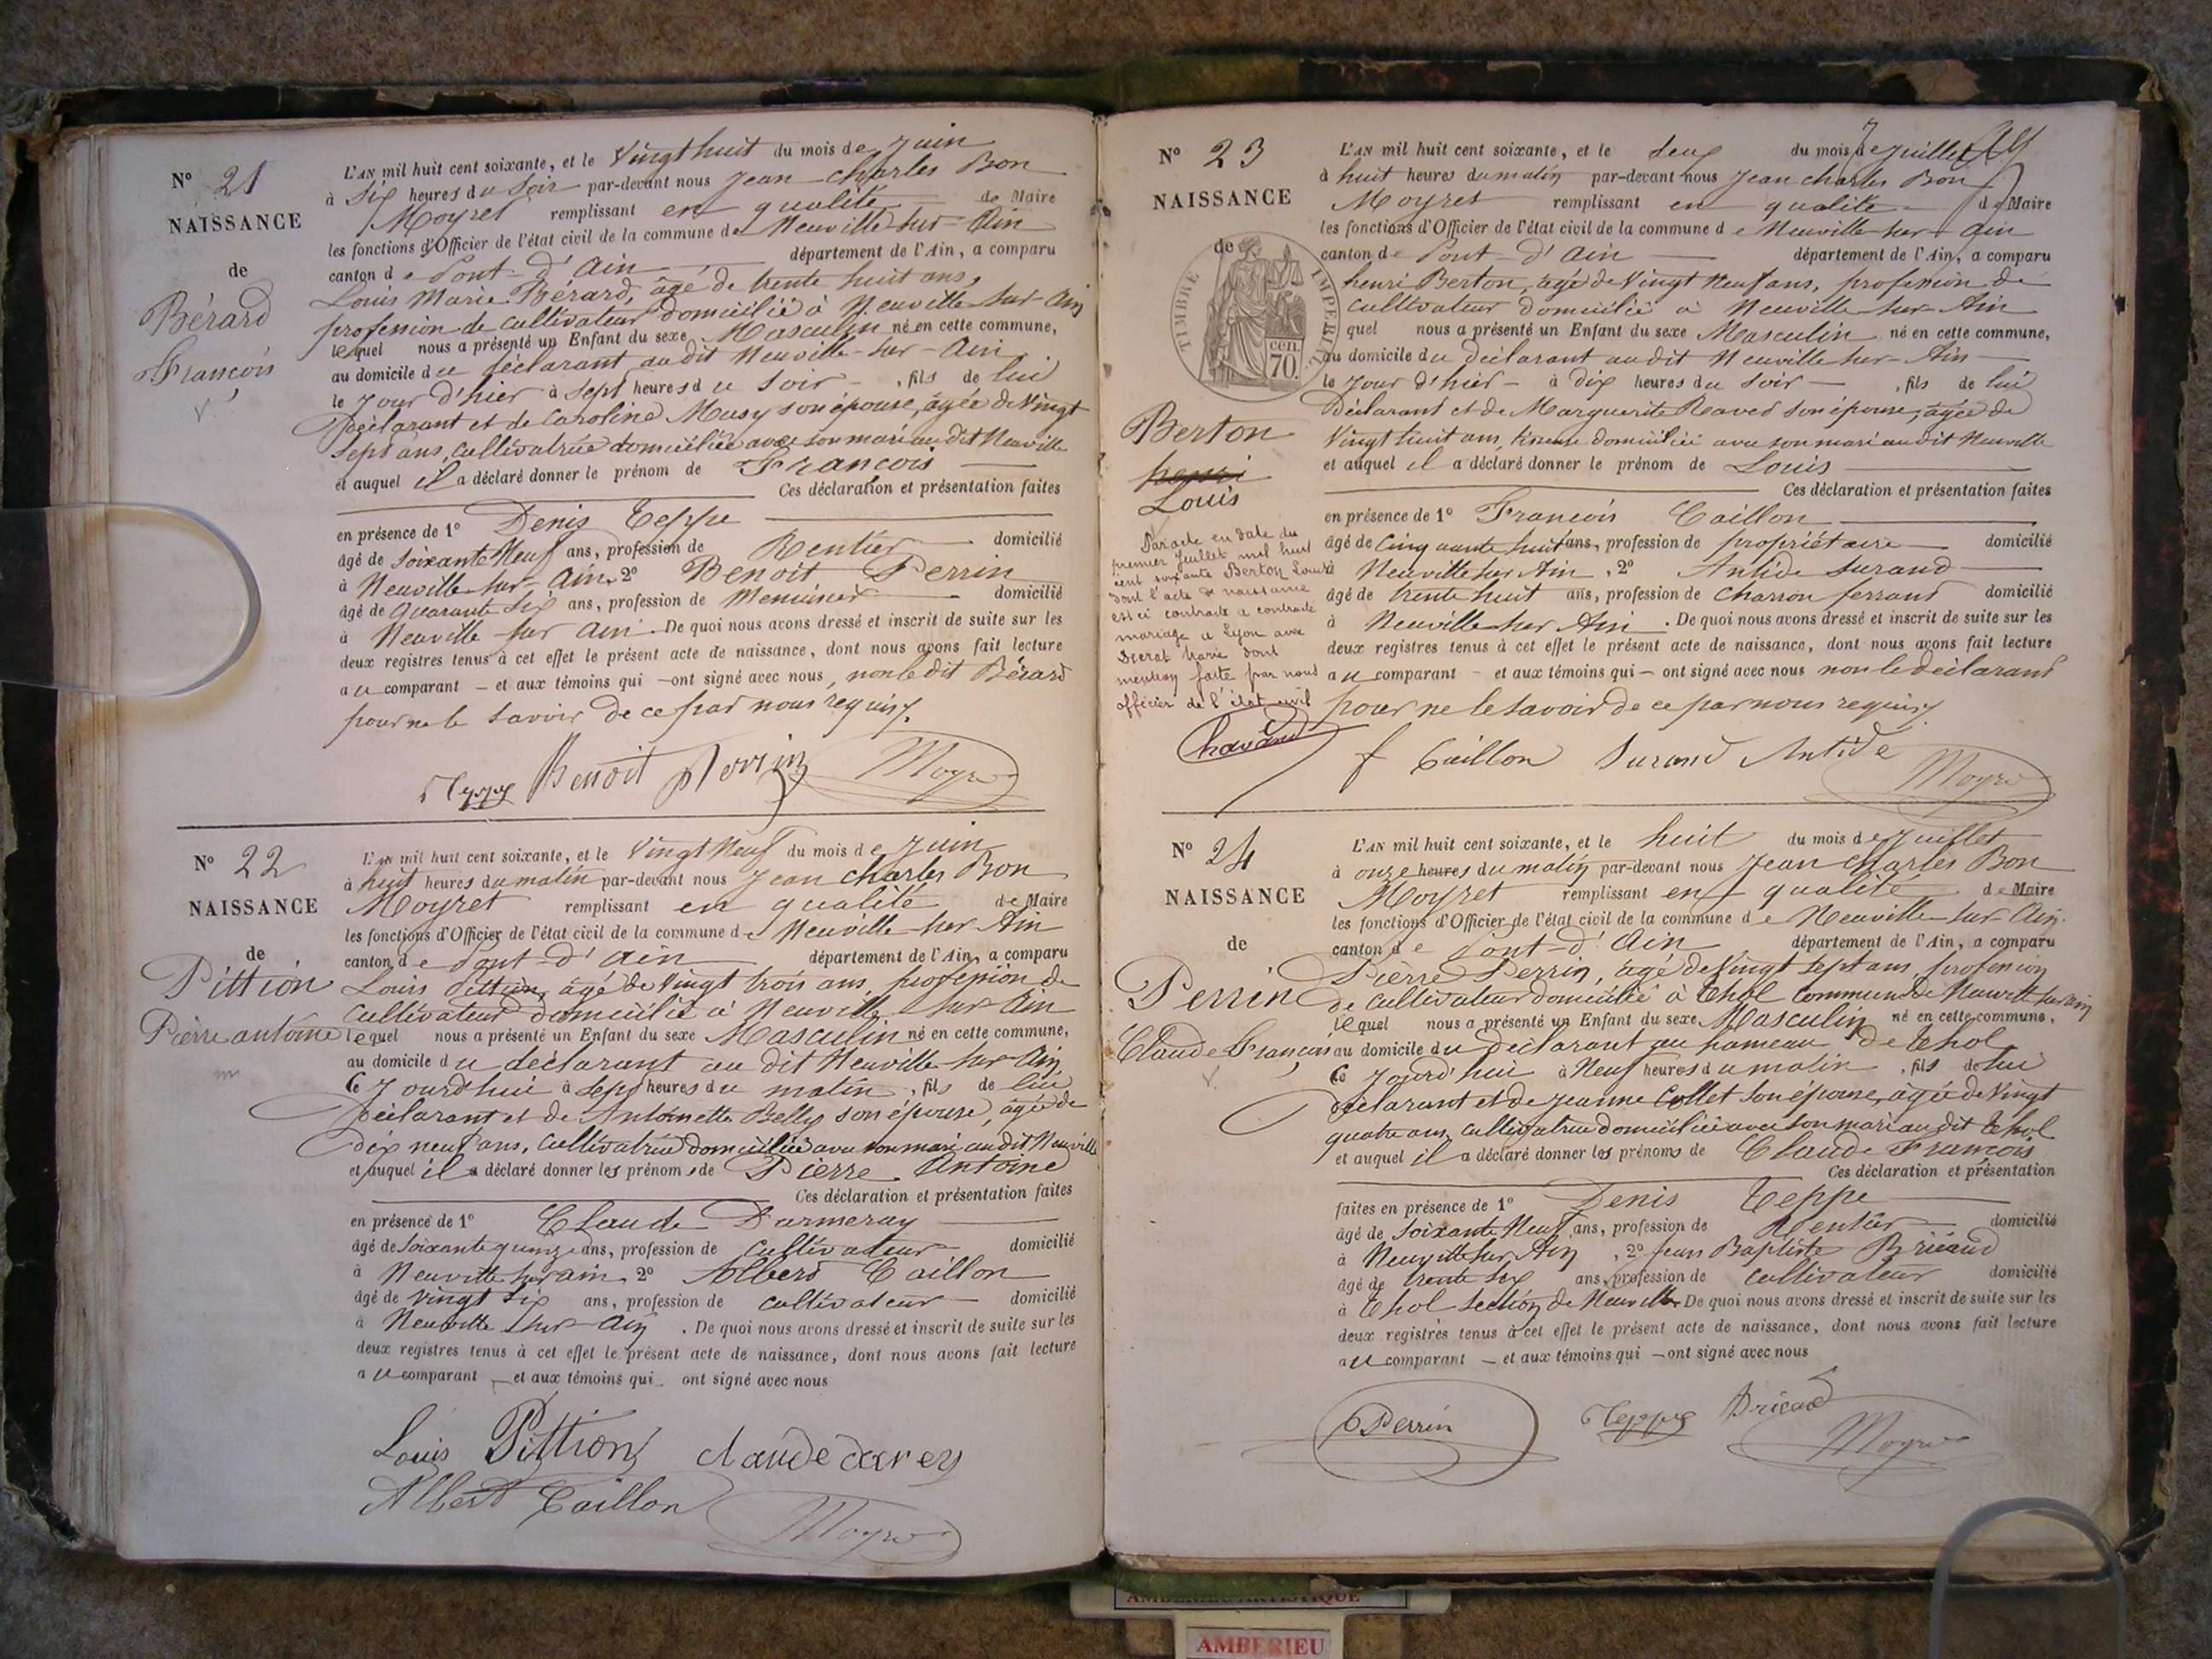 N° 21
NAISSANCE
de
Bérard
François
L'AN mil huit cent soixante, et le Vingt huit du mois de Juin
à Six heures du Soir par-devant nous Jean Charles Bon
Moyret remplissant en qualité de Maire
les fonctions d'Officier de l'état civil de la commune de Neuville sur Ain
canton de Pont-d'Ain département de l'Ain, a comparu
Louis Marie Bérard, âgé de trente huit ans,
profession de cultivateur domicilié à Neuville sur Ain
lequel nous a présenté un Enfant du sexe Masculin né en cette commune,
au domicile du déclarant au dit Neuville-sur-Ain
le Jour d'hier à Sept heures du Soir, fils de lui
Déclarant et de Caroline Musy son épouse, âgée de Vingt
Sept ans, cultivatrice domiciliée avec son mari au dit Neuville
et auquel il a déclaré donner le prénom de François
Ces déclaration et présentation faites
en présence de 1° Denis Teppe
âgé de soixante Neuf ans, profession de Rentier domicilié
à Neuville sur Ain, 2° Benoit Perrin
âgé de quarante Six ans, profession de Menuisier domicilié
à Neuville sur Ain. De quoi nous avons dressé et inscrit de suite sur les
deux registres tenus à cet effet le présent acte de naissance, dont nous avons fait lecture
au comparant – et aux témoins qui – ont signé avec nous, non le dit Bérard
pour ne le savoir de ce par nous requis.
Teppe Benoit Perrin Moyret
N° 22
NAISSANCE
de
Pittion
Pierre antoine
L'AN mil huit cent soixante, et le Vingt Neuf du mois de Juin
à huit heures du matin par-devant nous Jean Charles Bon
Moyret remplissant en qualité de Maire
les fonctions d'Officier de l'état civil de la commune de Neuville sur Ain
canton de Pont-d'Ain département de l'Ain, a comparu
Louis Pittion, âgé de Vingt trois ans, profession de
Cultivateur domicilié à Neuville sur Ain
lequel nous a présenté un Enfant du sexe Masculin né en cette commune,
au domicile du déclarant au dit Neuville sur Ain,
Ce Jourd'hui à Sept heures du matin, fils de lui
Déclarant et de Antoinette Belly son épouse, âgée de
Dix neuf ans, cultivatrice domiciliée avec son mari au dit Neuville
et auquel il a déclaré donner les prénoms de Pierre Antoine
Ces déclaration et présentation faites
en présence de 1° Claude Darmeray
âgé de soixante quinze ans, profession de cultivateur domicilié
à Neuville sur ain, 2° Albert Caillon
âgé de Vingt Six ans, profession de cultivateur domicilié
à Neuville sur Ain. De quoi nous avons dressé et inscrit de suite sur les
deux registres tenus à cet effet le présent acte de naissance, dont nous avons fait lecture
au comparant – et aux témoins qui – ont signé avec nous
Louis Pittion claude darey
Albert Caillon Moyret
N° 23
NAISSANCE
de
TIMBRE IMPERIAL
70. cen.
Berton
henri
Louis
Par acte en date du
premier Juillet mil huit
cent soixante Berton Louis
dont l'acte de naissance
est ci contracte a contracté
mariage à Lyon avec
Decrat Marie dont
mention faite par nous
officier de l'état civil
Chavand
L'AN mil huit cent soixante, et le deux du mois de Juillet
à huit heures du matin par-devant nous Jean Charles Bon
Moyret remplissant en qualité de Maire
les fonctions d'Officier de l'état civil de la commune de Neuville sur Ain
canton de Pont-d'Ain département de l'Ain, a comparu
henri Berton, âgé de Vingt Neuf ans, profession de
cultivateur domicilié à Neuville sur Ain
quel nous a présenté un Enfant du sexe Masculin né en cette commune,
au domicile du déclarant au dit Neuville sur Ain
le Jour d'hier – à dix heures du soir –, fils de lui
Déclarant et de Marguerite Raved son épouse, âgée de
Vingt huit ans, domiciliée avec son mari au dit Neuville
et auquel il a déclaré donner le prénom de Louis
Ces déclaration et présentation faites
en présence de 1° François Caillon
âgé de Cinquante huit ans, profession de propriétaire domicilié
à Neuville sur Ain, 2° Antide Durand
âgé de trente huit ans, profession de charron ferrant domicilié
à Neuville sur Ain. De quoi nous avons dressé et inscrit de suite sur les
deux registres tenus à cet effet le présent acte de naissance, dont nous avons fait lecture
au comparant – et aux témoins qui – ont signé avec nous non le déclarant
pour ne le savoir de ce par nous requis.
f Caillon Durand Antide Moyret
N° 24
NAISSANCE
de
Perrin
Claude François
L'AN mil huit cent soixante, et le huit du mois de Juillet
à onze heures du matin par-devant nous Jean Charles Bon
Moyret remplissant en qualité de Maire
les fonctions d'Officier de l'état civil de la commune de Neuville sur Ain.
canton de Pont-d'Ain département de l'Ain, a comparu
Pierre Perrin, âgé de Vingt Sept ans, profession
de cultivateur domicilié à Thol commune de Neuville sur Ain
lequel nous a présenté un Enfant du sexe Masculin né en cette commune,
au domicile du déclarant au hameau de Thol
Ce Jourd'hui à Neuf heures du matin, fils de lui
Déclarant et de Jeanne Collet son épouse, âgée de Vingt
quatre ans, cultivatrice domiciliée avec son mari au dit Thol
et auquel il a déclaré donner les prénoms de Claude François
Ces déclaration et présentation
faites en présence de 1° Denis Teppe
âgé de soixante Neuf ans, profession de Rentier domicilié
à Neuville sur Ain, 2° Jean Baptiste Bricaud
âgé de trente Six ans, profession de cultivateur domicilié
à Thol section de Neuville. De quoi nous avons dressé et inscrit de suite sur les
deux registres tenus à cet effet le présent acte de naissance, dont nous avons fait lecture
au comparant – et aux témoins qui – ont signé avec nous
Perrin Teppe Bricaud Moyret
AMBERIEU ARTISTIQUE
AMBERIEU